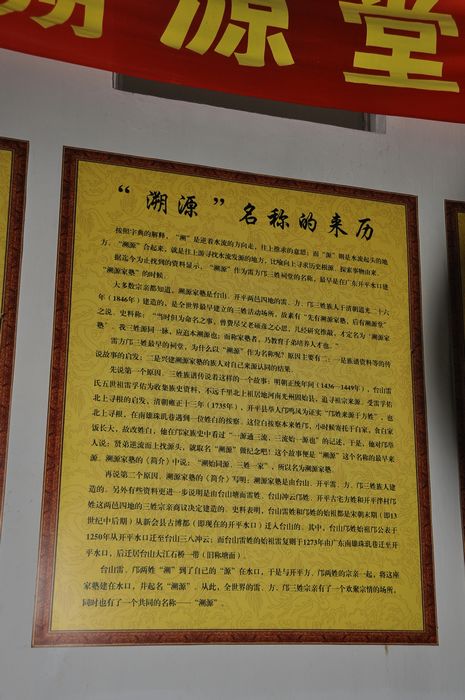 溯源堂
“溯源”名称的来历
按照字典的解释，“溯”是逆着水流的方向走，往上推求的意思；而“源”则是水流起头的地
方。“溯源”合起来，就是往上游寻找水流发源的地方，比喻向上寻求历史根源、探索事物由来。
据迄今为止找到的资料显示，“溯源”作为雷方邝三姓祠堂的名称，最早是在广东开平水口建
“溯源家塾”的时候。
大多数宗亲都知道，溯源家塾是台山、开平两邑四地的雷、方、邝三姓族人于清朝道光二十六
年（1846年）建造的，是全世界最早建立的三姓活动场所，故素有“先有溯源家塾，后有溯源堂”
之说。史料称：“当时但为命名之事，曾费尽父老硕彦之心思，几经研究推敲，才定名为“溯源家
塾”。我三姓源同一脉，应追本溯源也；而称家塾者，乃教育子弟培养人才也。”
雷方邝三姓最早的祠堂，为什么以“溯源”作为名称呢？原因主要有二：一是族谱资料等的传
说故事的启发；二是兴建溯源家塾的族人对自己来源认同的结果。
先说第一个原因。三姓族谱传说着这样的一个故事：明朝正统年间（1436—1449年），台山雷
氏五世祖雷孚佑为收集族史资料，不远千里北上祖居地河南光州固始县，追寻祖宗来源。受雷孚佑
北上寻根的启发，清朝雍正十三年（1735年），开平县举人邝鸣凤为证实“邝姓来源于方姓”，也
北上寻根，在南雄珠玑巷遇到一位姓白的挨察。这位白挨察本来姓邝，小时候寄托于白家，食白家
饭长大，故改姓白。他在邝家族史中看过“一源通三流，三流始一源也”的记述。于是，他对邝举
人说：贤弟逆流而上找源头，就取名“溯源”做纪念吧！这个故事便是“溯源”这个名称的最早来
源。溯源家塾的《简介》中说：“溯始同源、三姓一家”，所以名为溯源家塾。
再说第二个原因。溯源家塾的《简介》写明：溯源家塾是由台山、开平雷、方、邝三姓族人建
造的。另外有些资料更进一步说明是由台山塘面雷姓、台山冲云邝姓、开平古宅方姓和开平祥村邝
姓这两邑四地的三姓宗亲商议决定建造的。史料表明，台山雷姓和邝姓的始祖都是宋朝末期（即13
世纪中后期）从新会县古博都（即现在的开平水口）迁入台山的。其中，台山邝姓始祖邝公表于
1250年从开平水口迁至台山三八冲云；而台山雷姓的始祖雷复则于1273年由广东南雄珠玑巷迁至开
平水口，后迁居台山大江石桥一带（旧称塘面）。
台山雷、邝两姓“溯”到了自己的“源”在水口，于是与开平方、邝两姓的宗亲一起，将这座
家塾建在水口，并起名“溯源”。从此，全世界的雷、方、邝三姓宗亲有了一个欢聚宗情的场所，
同时也有了一个共同的名称——“溯源”。